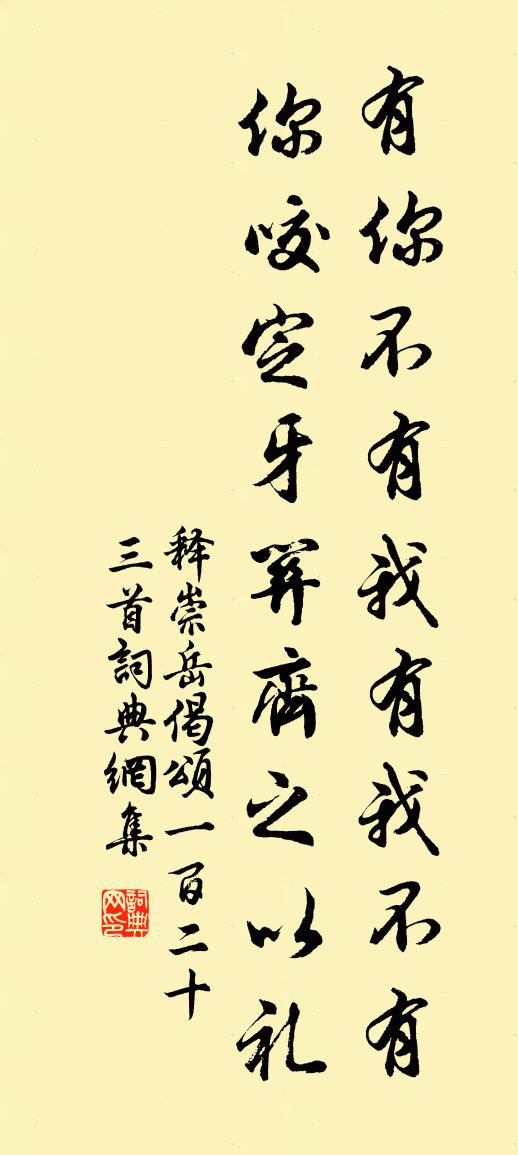 有你不有我有我不有
你咬定牙關齊之以礼
释崇岳偈頌一百二十
三首詞典網集
詞典网印